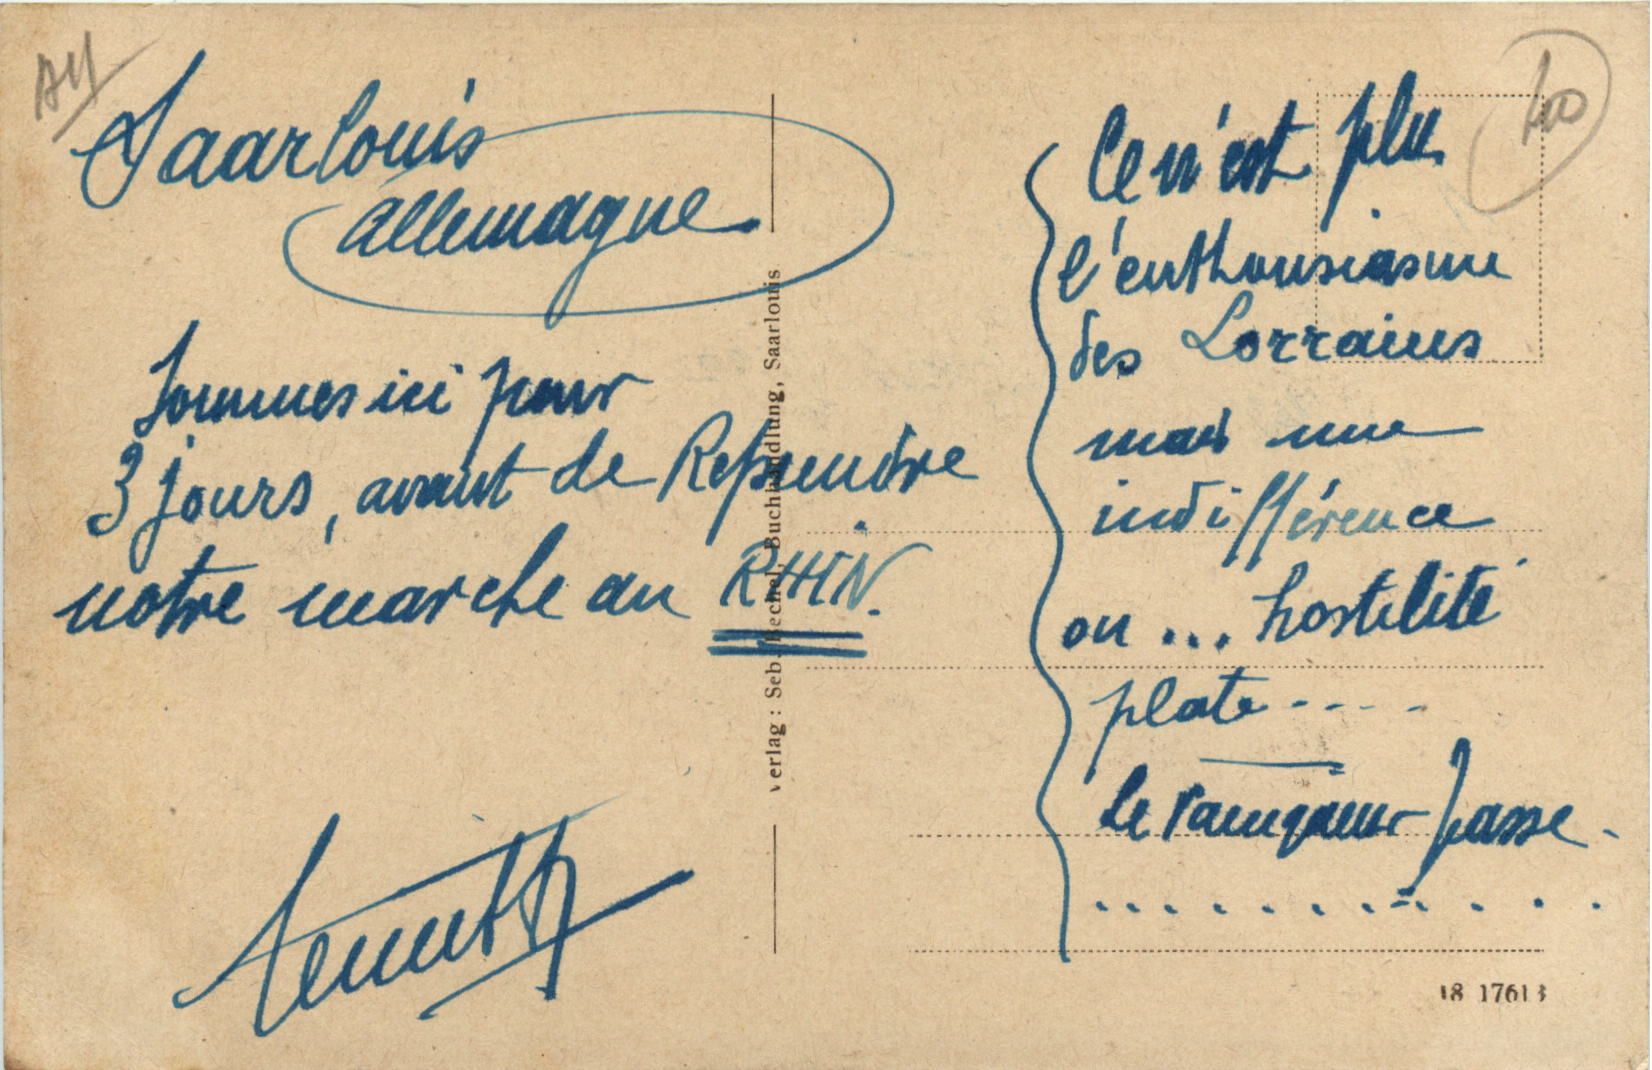 Saarlouis
Allemagne.
Sommes ici pour
3 jours, avant de Reprendre
notre marche au RHIN.
Verlag: Seb. Bechel, Buchhandlung, Saarlouis
Ce n'est plus
l'enthousiasme
des Lorrains
mais une
indifférence
ou ... hostilité
plate ....
Le vainqueur passe.
. . . . . . . . . . . .
18 17613